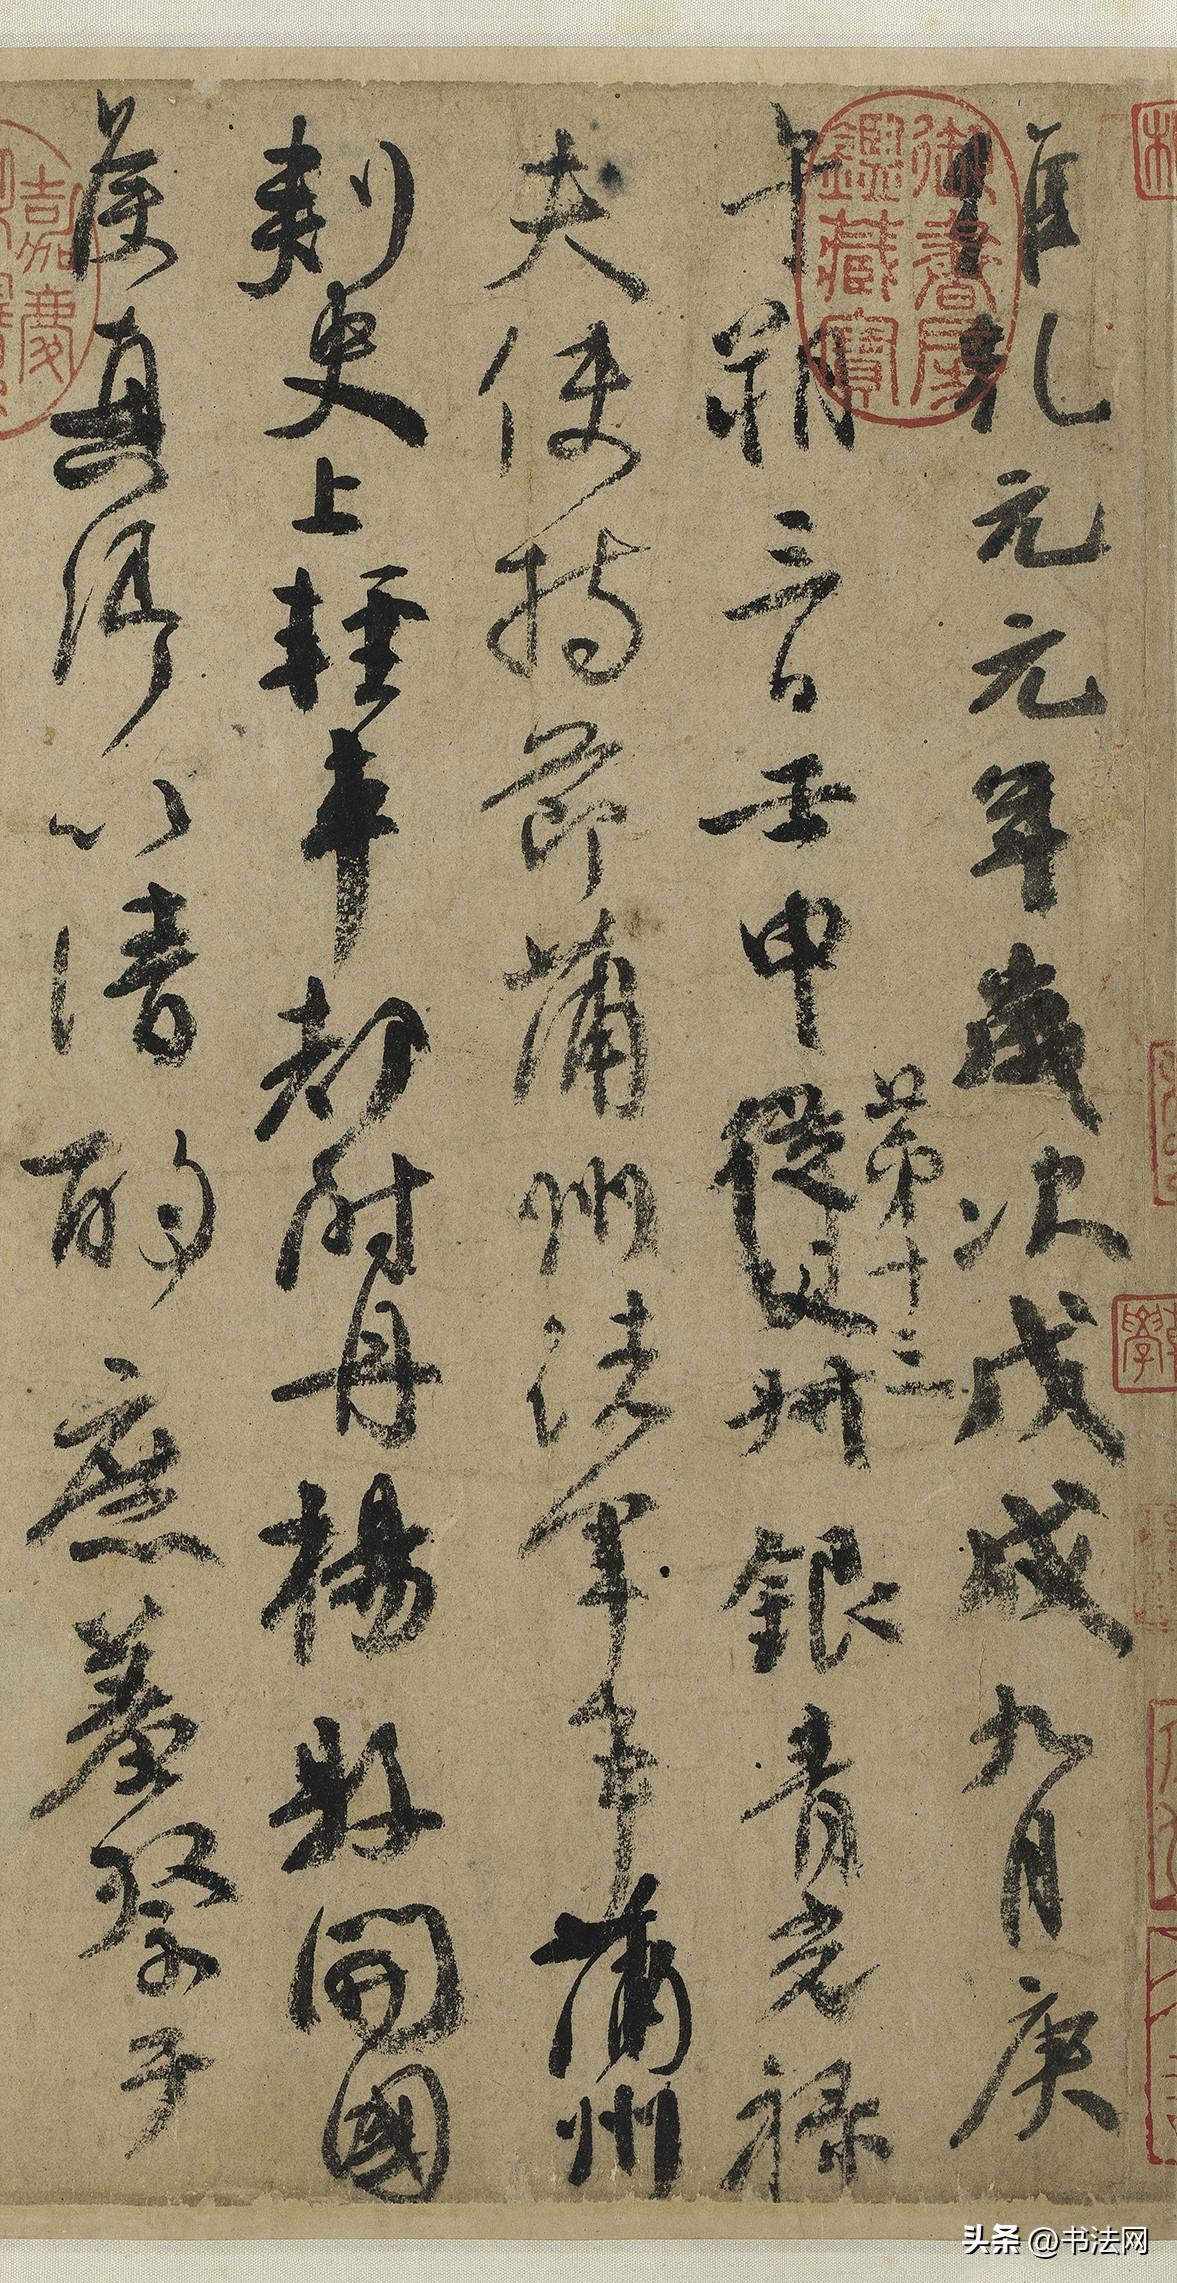 維乾元元年歲次戊戌九月庚
午朔三日壬申從父叔銀青光祿
第十三
夫使持節蒲州諸軍事蒲州
刺史上輕車都尉丹楊縣開國
侯真卿以清酌庶羞祭于
御書房鑑藏寶
嘉慶
头条 @书法网